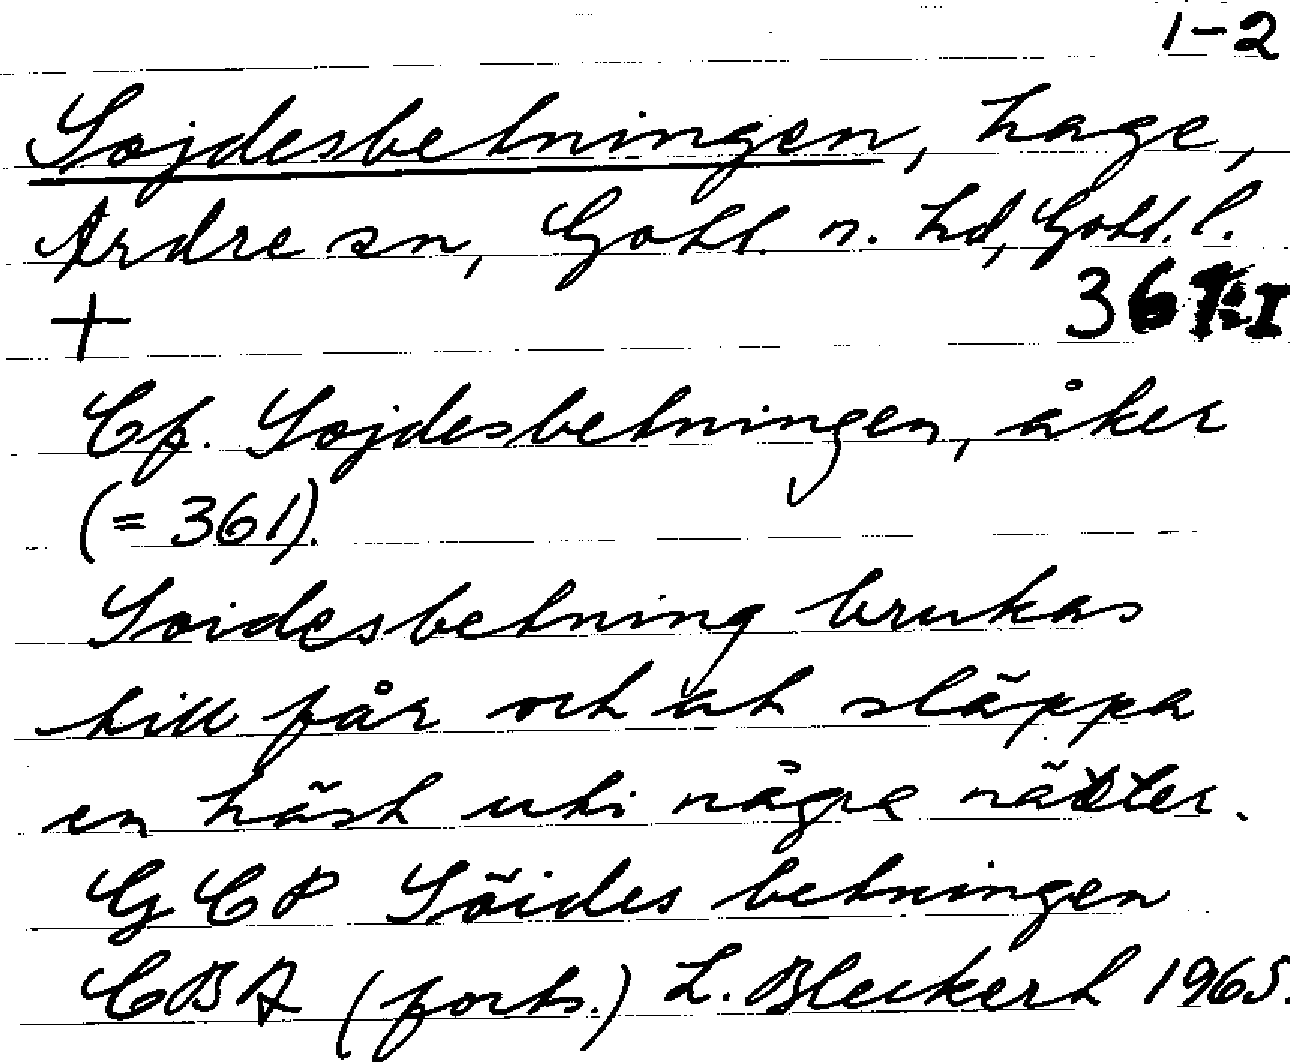 1-2
Sojdesbetningen, hage,
Ardre sn, Gotl. n. hd, Gotl. l.
+ 36 I
Cf. Sojdesbetningen, åker
(= 361).
Soidesbetning brukas
till får och at släppa
en häst uti några nätter.
GCP Söides betningen
CBA (forts.) L. Bleckert 1965.